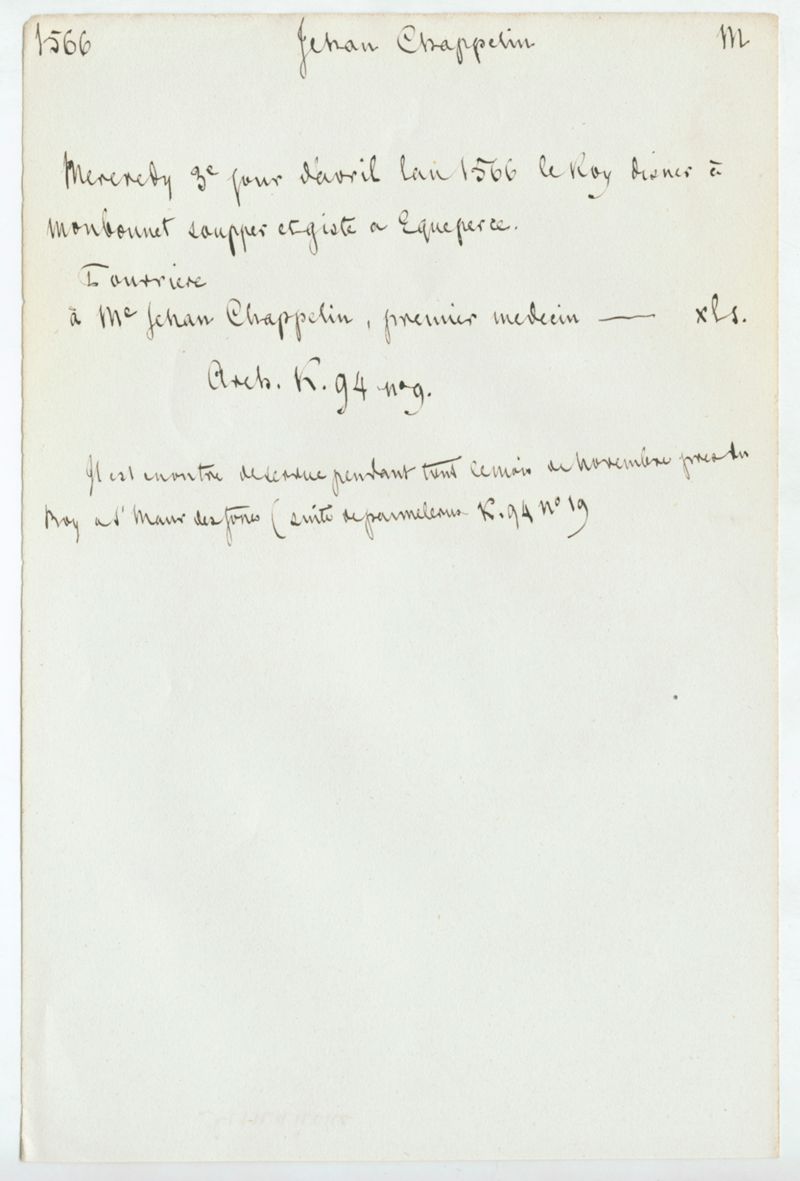 1566 Jehan Chappelin M
Mercredy 3e jour d'avril l'an 1566 le Roy disner à
Monbonnet soupper et giste a Equeperce.
Fourriere
à Me Jehan Chappelin, premier medecin — xls.
Arch. K. 94 no 9.
Il est en outre pendant tout le mois de Novembre pres du
Roy a St Maur des fossés (suite de K. 94 No 19